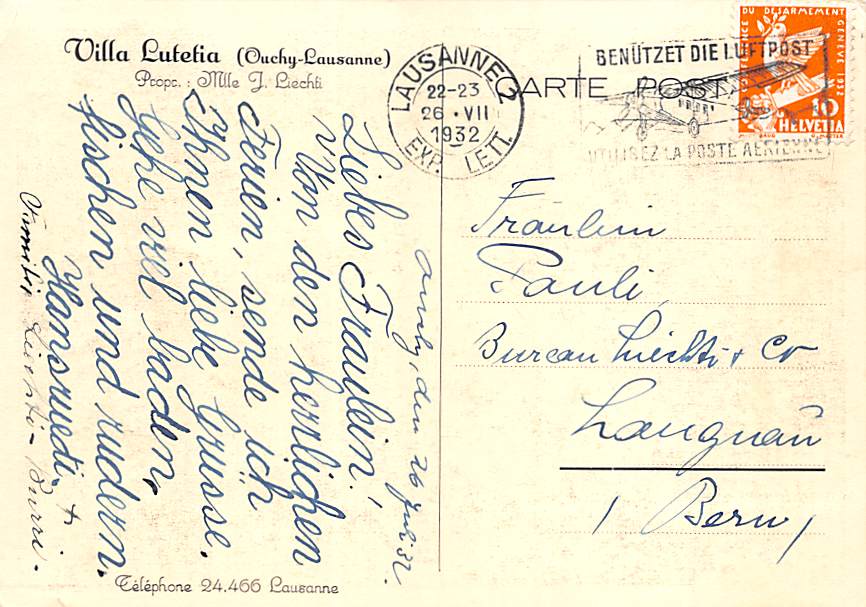 Villa Lutetia (Ouchy-Lausanne)
Propr. : Mlle J. Liechti
CARTE POSTALE
LAUSANNE 2
22-23
26·VII
1932
EXP. LETT.
BENÜTZET DIE LUFTPOST
UTILISEZ LA POSTE AÉRIENNE
CONFÉRENCE DU DÉSARMEMENT GENÈVE 1932
10
HELVETIA
Ouchy, den 26 Juli 32.
Liebes Fräulein!
Von den herrlichen
Ferien, sende ich
Ihnen liebe Grüsse.
Gehe viel baden,
fischen und rudern.
Hansruedi. +
Familie Liechti-Burri.
Fräulein
Pauli
Bureau Liechti + Co
Langnau
/ Bern /
Téléphone 24.466 Lausanne